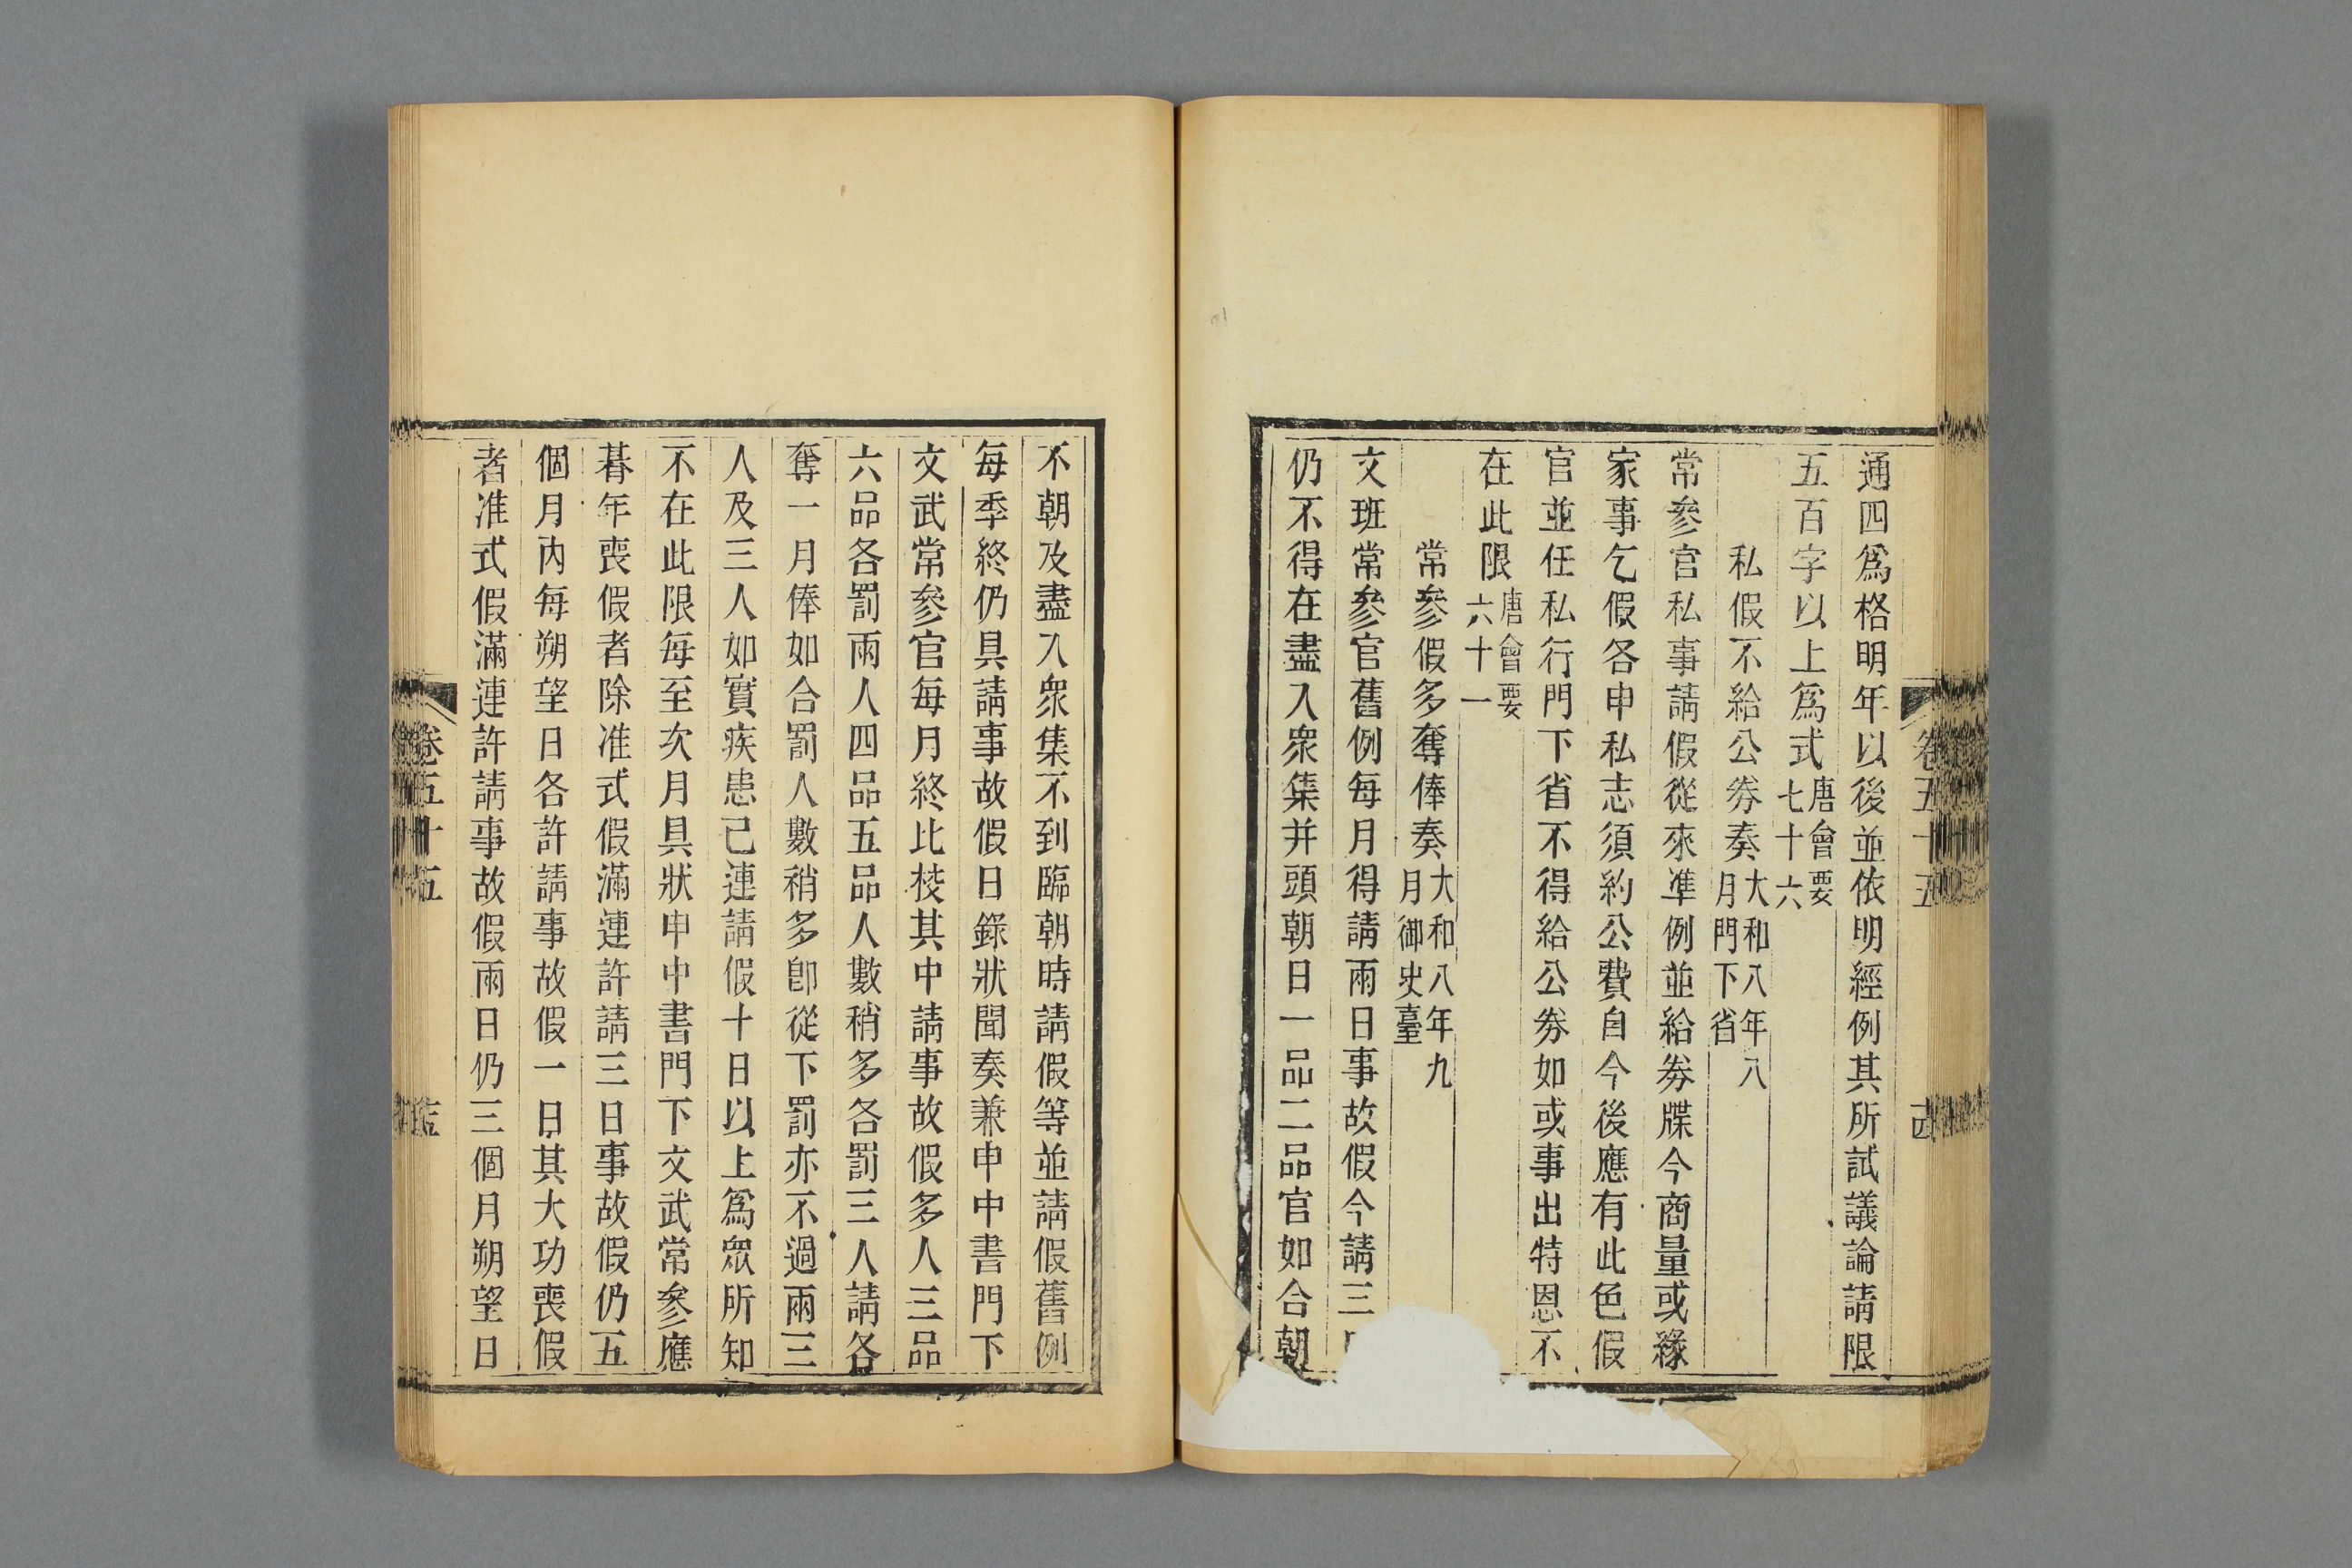 通四爲格明年以後並依明經例其所試議論請限
五百字以上爲式唐會要七十六
私假不給公券奏大和八年八月門下省
常參官私事請假從來准例並給券牒今商量或緣
家事乞假各申私志須約公費自今後應有此色假
官並任私行門下省不得給公券如或事出特恩不
在此限唐會要六十一
常參假多奪俸奏大和八年九月御史臺
文班常參官舊例每月得請兩日事故假今請三
仍不得在盡入衆集并頭朝日一品二品官如合朝
卷五十五
不朝及盡入衆集不到臨朝時請假等並請假舊例
每季終仍具請事故假日錄狀聞奏兼申中書門下
文武常參官每月終比校其中請事故假多人三品
六品各罰兩人四品五品人數稍多各罰三人請各
奪一月俸如合罰人數稍多卽從下罰亦不過兩三
人及三人如實疾患已連請假十日以上爲眾所知
不在此限每至次月具狀申中書門下文武常參應
朞年喪假者除准式假滿連許請三日事故假仍五
個月內每朔望日各許請事故假一日其大功喪假
者准式假滿連許請事故假兩日仍三個月朔望日
卷五十五